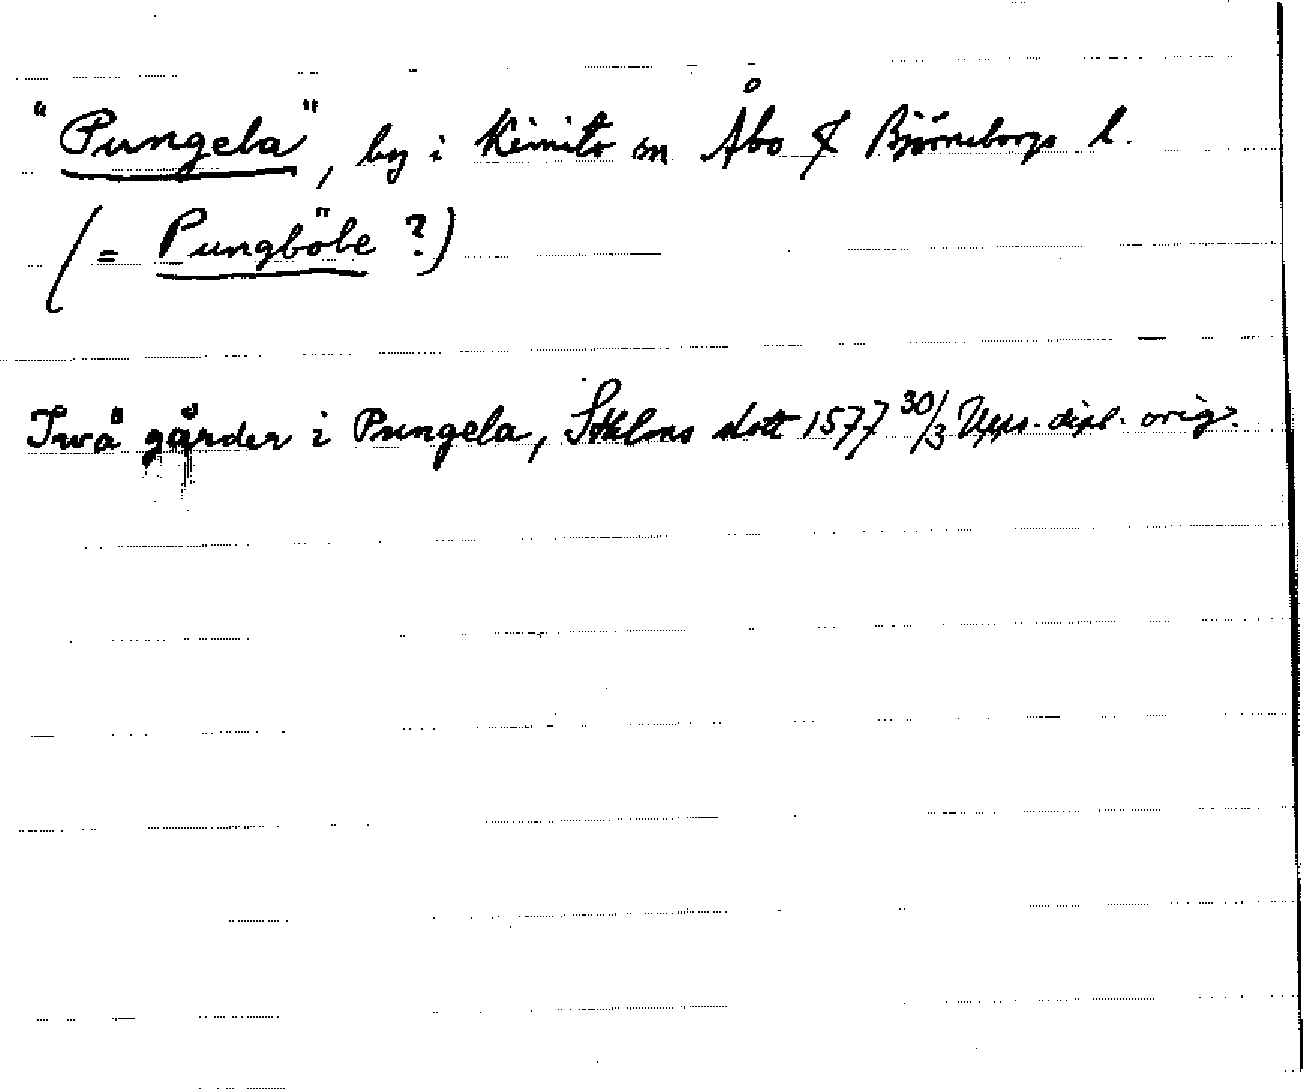 "Pungela", by i Kimito sn Åbo & Björneborgs l.
(= Pungböle ?)
Twå gårder i Pungela, Sthlms slott 1577 30/3 Upps. dipl. orig.